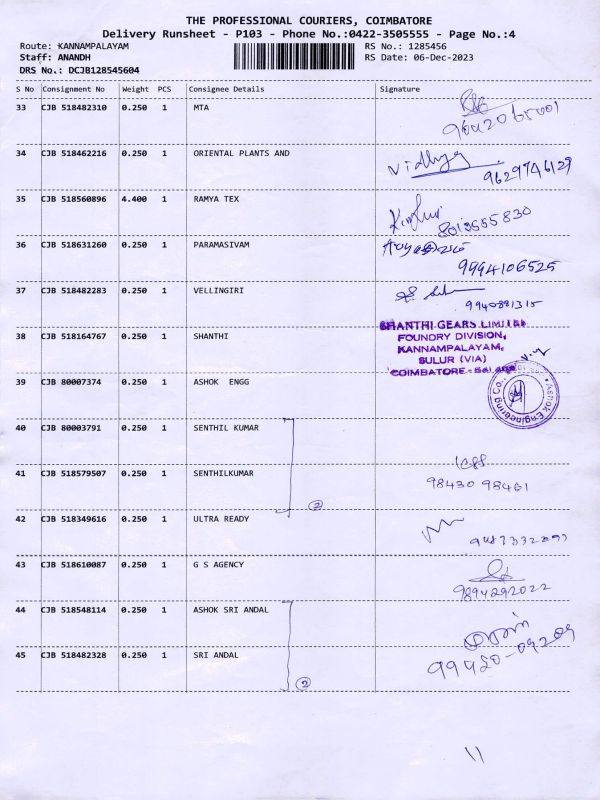 THE PROFESSIONAL COURIERS, COIMBATORE
Delivery Runsheet - P103 - Phone No.:0422-3505555 - Page No.:4
Route: KANNAMPALAYAM RS No.: 1285456
Staff: ANANDH RS Date: 06-Dec-2023
DRS No.: DCJB128545604
S No Consignment No Weight PCS Consignee Details Signature
33 CJB 518482310 0.250 1 MTA
34 CJB 518462216 0.250 1 ORIENTAL PLANTS AND Vidhya
9629746129
35 CJB 518560896 4.400 1 RAMYA TEX
8013555830
36 CJB 518631260 0.250 1 PARAMASIVAM
9994106525
37 CJB 518482283 0.250 1 VELLINGIRI
9940881315
SHANTHI GEARS LIMITED
FOUNDRY DIVISION,
38 CJB 518164767 0.250 1 SHANTHI
KANNAMPALAYAM,
SULUR (VIA)
COIMBATORE
39 CJB 80007374 0.250 1 ASHOK ENGG
Ashok Engineering Co.
40 CJB 80003791 0.250 1 SENTHIL KUMAR
41 CJB 518579507 0.250 1 SENTHILKUMAR
98430 98461
2
42 CJB 518349616 0.250 1 ULTRA READY
43 CJB 518610087 0.250 1 G S AGENCY
9894292022
44 CJB 518548114 0.250 1 ASHOK SRI ANDAL
45 CJB 518482328 0.250 1 SRI ANDAL
2
11